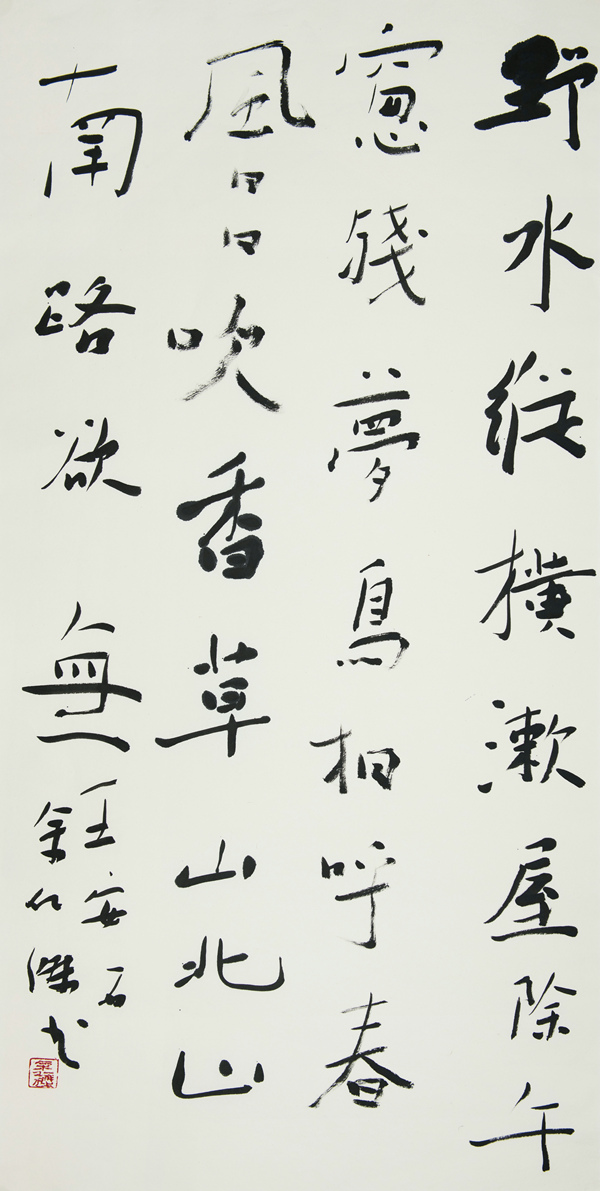 野水縱橫漱屋除午
窻殘夢鳥相呼春
風日日吹香草山北山
南路欲無
王安石
仁傑書